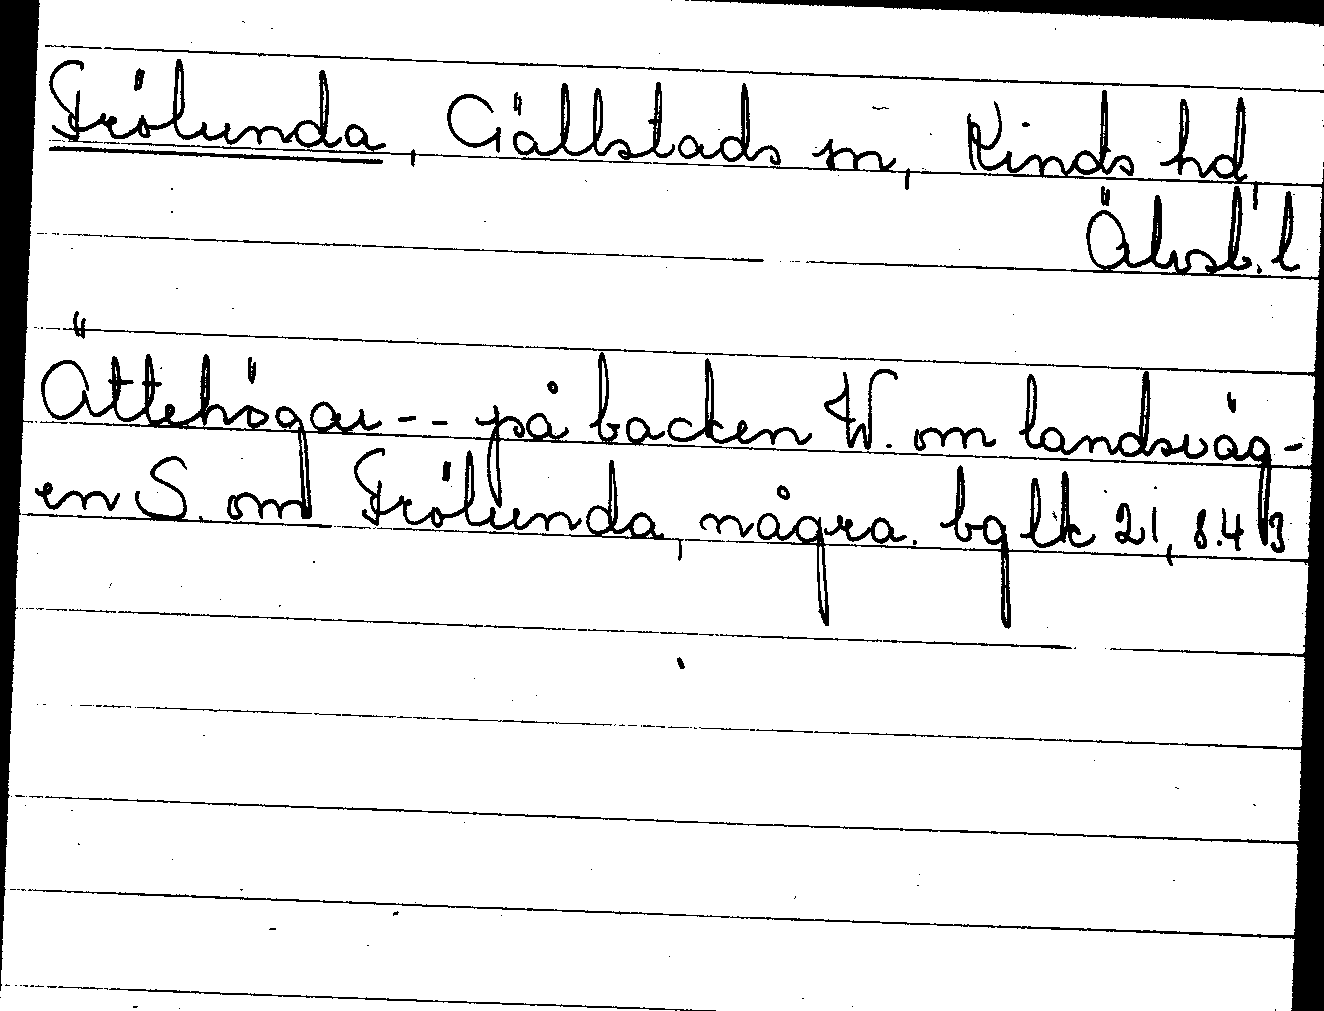 Frölunda, Gällstads sn, Kinds hd,
Älvsb. l
Ättehögar -- på backen W. om landsväg-
en S. om Frölunda, några. bglk 21, s. 43